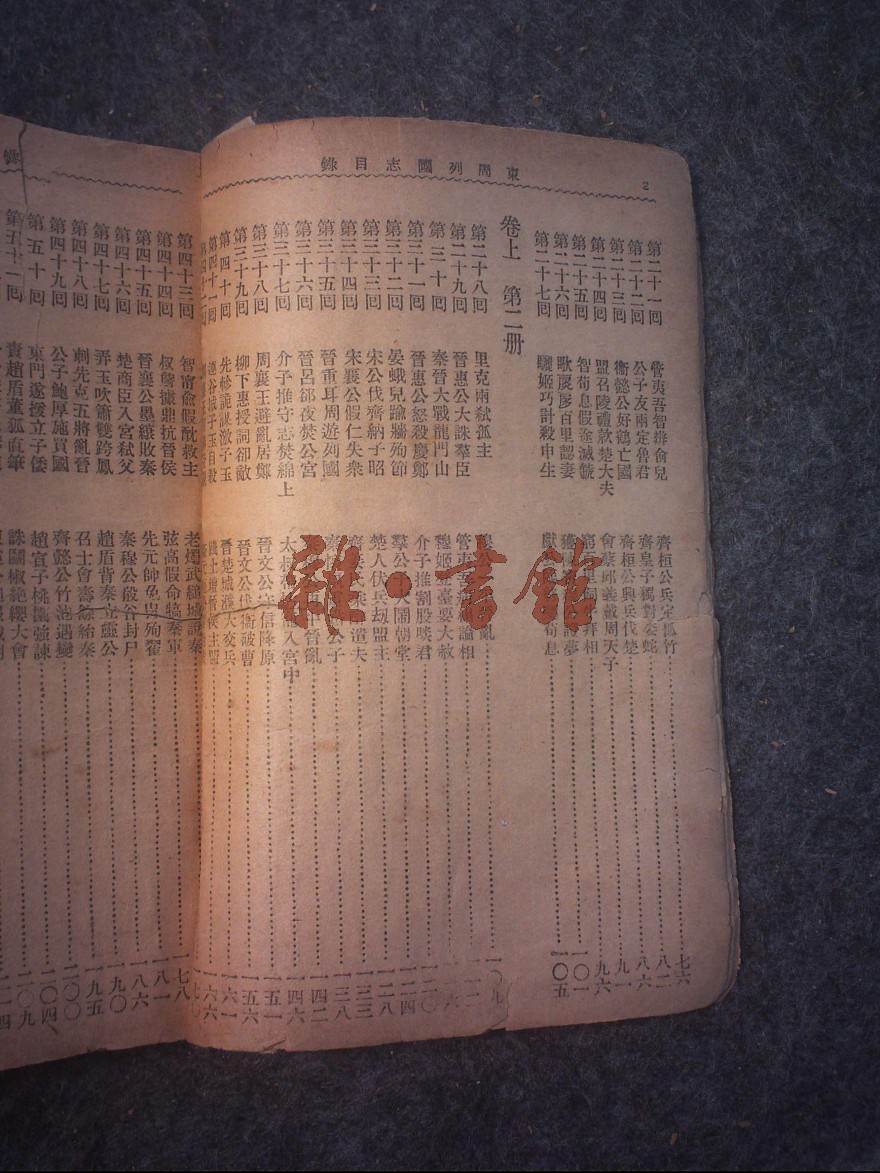 東周列國志目錄
2
第二十一回 管夷吾智辨俞兒 齊桓公兵定孤竹 七六
第二十二回 公子友兩定魯君 齊皇子獨對委蛇 八二
第二十三回 衛懿公好鶴亡國 齊桓公興兵伐楚 八六
第二十四回 盟召陵禮款楚大夫 會葵邱義戴周天子 九一
第二十五回 智荀息假途滅虢 窮百里 拜相 九六
第二十六回 歌扊扅百里認妻 獲 夢 一〇一
第二十七回 驪姬巧計殺申生 獻 荀息 一〇五
卷上 第二册
第二十八回 里克兩弒孤主 亂
第二十九回 晉惠公大誅羣臣 管夷吾 論相
第三十回 秦晉大戰龍門山 穆姬 臺要大赦
第三十一回 晉惠公怒殺慶鄭 介子推割股啖君
第三十二回 晏蛾兒踰牆殉節 羣公子大鬧朝堂 二四
第三十三回 宋公伐齊納子昭 楚人伏兵刼盟主 二八
第三十四回 宋襄公假仁失衆 齊 遣夫 三三
第三十五回 晉重耳周遊列國 公子 三八
第三十六回 晉呂郤夜焚公宮 晉亂 四二
第三十七回 介子推守志焚綿上 太叔 入宮中 四六
第三十八回 周襄王避亂居鄭 晉文公守信降原 五一
第三十九回 柳下惠授詞卻敵 晉文公伐衛破曹 五六
第四十回 先軫詭謀激子玉 晉楚城濮大交兵 六一
第四十一回 連谷城子玉自殺 踐土壇晉侯主盟 六六
第四十三回 智甯俞假酖救主 老燭武縋城說秦 七八
第四十四回 叔詹據鼎抗晉侯 弦高假命犒秦軍 八一
第四十五回 晉襄公墨縗敗秦 先元帥免冑殉翟 八六
第四十六回 楚商臣入宮弒父 秦穆公殽谷封尸 九〇
第四十七回 弄玉吹簫雙跨鳳 趙盾背秦立靈公 九五
第四十八回 刺先克五將亂晉 召士會壽餘紿秦 一〇〇
第四十九回 公子鮑厚施買國 齊懿公竹池遇變 一〇四
第五十回 東門遂援立子倭 趙宣子桃園強諫 一〇九
第五十一回 責趙盾董狐直筆 誅鬭椒絶纓大會
雜·書館